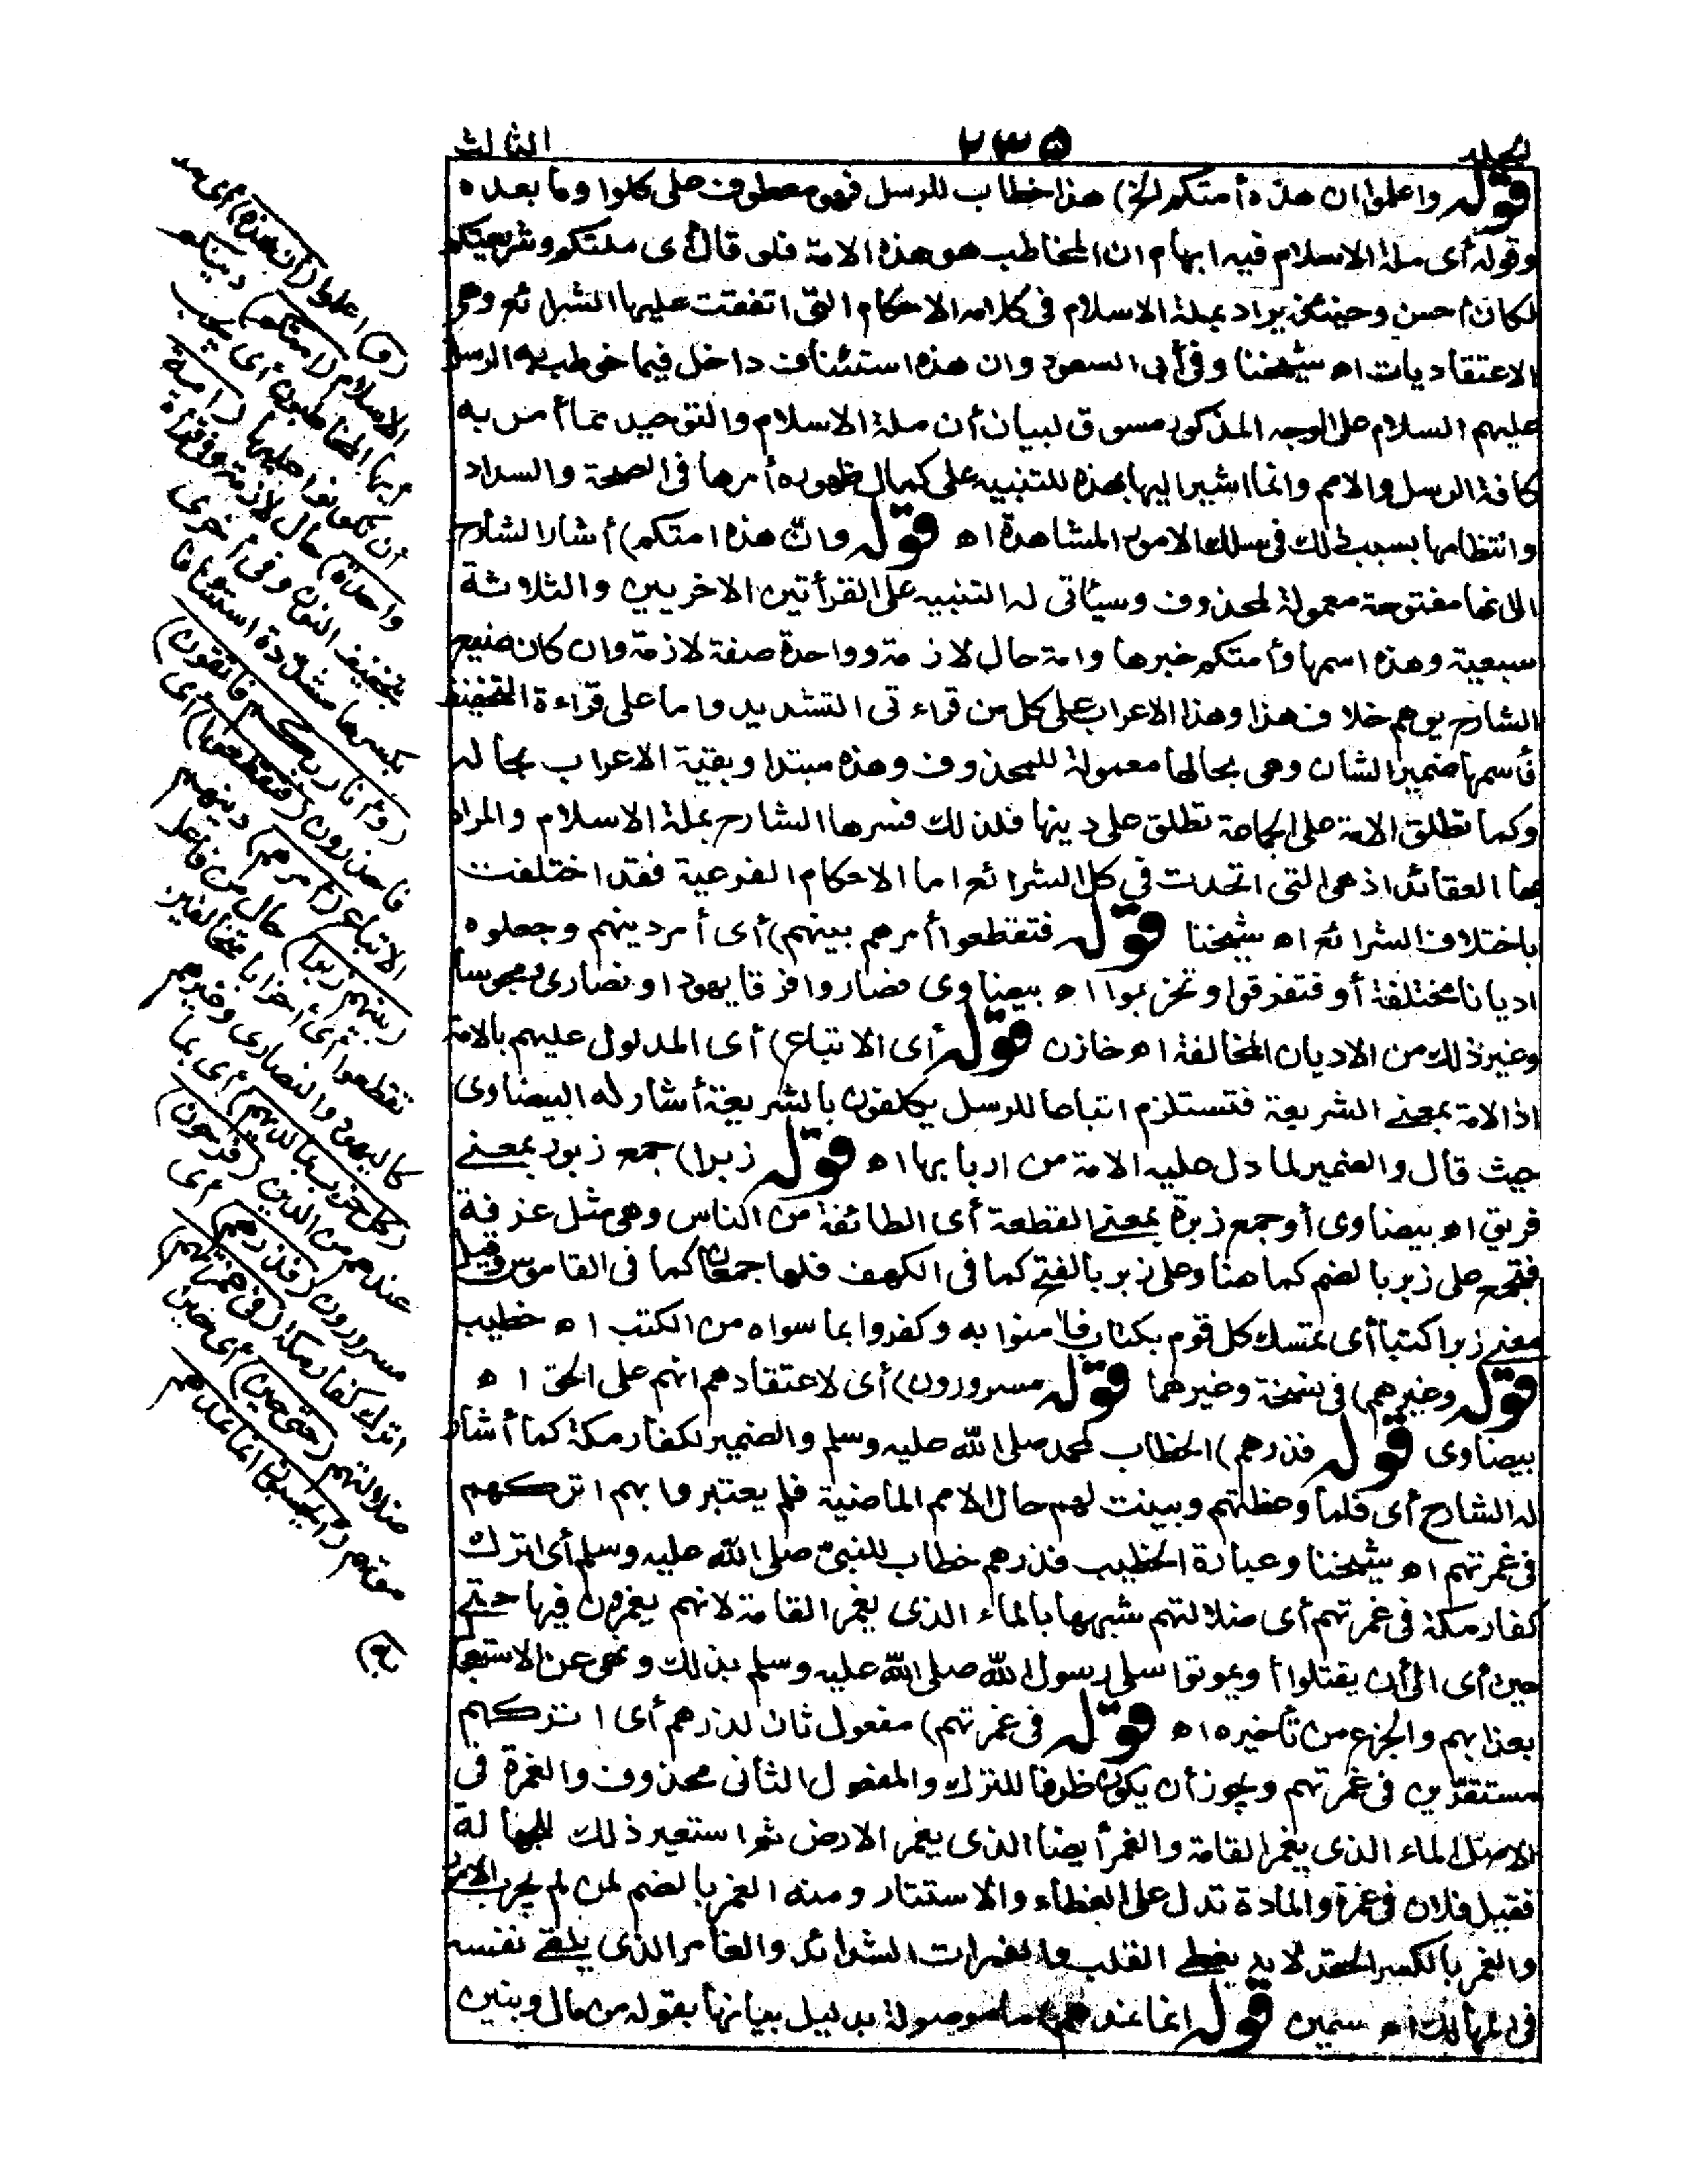 المجلد ٢٣٥ الثالث
قوله واعلموا ان هذه أمتكم الخ) هذا خطاب للرسل فهو معطوف على كلوا وما بعده
وقوله أى ملة الاسلام فيه ابهام ان المخاطب هو هذه الامة فلو قال أى ملتكم وشريعتكم
لكان أحسن وحينئذ يراد بملة الاسلام فى كلامه الاحكام التى اتفقت عليها الشرائع وهى
الاعتقاديات اه شيخنا وفى أبى السعود وان هذه استئناف داخل فيما خوطب به الرسل
عليهم السلام على الوجه المذكور مسوق لبيان أن ملة الاسلام والتوحيد مما أمر به
كافة الرسل والامم وانما اشير اليها بهذه للتنبيه على كمال ظهوره أمرها فى الصحة والسداد
وانتظامها بسبب ذلك فى سلك الامور المشاهدة اه قوله وانّ هذه امتكم) أشار الشارح
الى انها مفتوحة معمولة لمحذوف وسيأتى له التنبيه على القرأتين الاخريين والثلاثة
سبعية وهذه اسمها وأمتكم خبرها وامة حال لازمة وواحدة صفة لازمة وان كان صنيع
الشارح يوهم خلاف هذا وهذا الاعراب على كل من قراءتى التشديد واما على قراءة التخفيف
فأسمها ضمير الشان وهى بحالها معمولة للمحذوف وهذه مبتدا وبقية الاعراب بحاله
وكما تطلق الامة على الجماعة تطلق على دينها فلذلك فسرها الشارح بملة الاسلام والمراد
بها العقائد اذ هى التى اتحدت فى كل الشرائع اما الاحكام الفرعية فقد اختلفت
باختلاف الشرائع اه شيخنا قوله فتقطعوا أمرهم بينهم) أى أمر دينهم وجعلوه
اديانا مختلفة أو فتفرقوا وتحزبوا اه بيضاوى فصاروا فرقا يهودا ونصارى ومجوسا
وغير ذلك من الاديان المخالفة اه خازن قوله أى الاتباع) أى المدلول عليهم بالامة
اذ الامة بمعنى الشريعة فتستلزم اتباعا للرسل يكلفون بالشريعة أشار له البيضاوى
حيث قال والضمير لما دل عليه الامة من اربابها اه قوله زبرا) جمع زبور بمعنى
فريق اه بيضاوى أو جمع زبرة بمعنى القطعة أى الطائفة من الناس وهى مثل غرفة
فتجمع على زبر بالضم كما هنا وعلى زبر بالفتح كما فى الكهف فلها جمعان كما فى القاموس وقيل
معنى زبرا كتبا أى تمسك كل قوم بكتاب فآمنوا به وكفروا بما سواه من الكتب اه خطيب
قوله وغيرهم) فى نسخة وغيرهما قوله مسرورون) أى لاعتقادهم انهم على الحق اه
بيضاوى قوله فذرهم) الخطاب لمحمد صلى الله عليه وسلم والضمير لكفار مكة كما أشار
له الشارح أى فلما وعظتهم وبينت لهم حال الامم الماضية فلم يعتبروا بهم اتركهم
فى غمرتهم اه شيخنا وعبارة الخطيب فذرهم خطاب للنبىّ صلى الله عليه وسلم أى اترك
كفار مكة فى غمرتهم أى ضلالتهم شبهها بالماء الذى يغمر القامة لانهم يغمرون فيها حتى
حين أى الى أن يقتلوا أو يموتوا سلى رسول الله صلى الله عليه وسلم بذلك ونهى عن الاستعجال
بعذابهم والجزع من تأخيره اه قوله فى غمرتهم) مفعول ثان لذرهم أى اتركهم
مستقرّين فى غمرتهم ويجوز أن يكون ظرفا للترك والمفعول الثانى محذوف والغمرة فى
الاصل الماء الذى يغمر القامة والغمر أيضا الذى يغمر الارض ثم استعير ذلك للجهالة
فقيل فلان فى غمرة والمادة تدل على الغطاء والاستتار ومنه الغمر بالضم لمن لم يجرب الامور
والغمر بالكسر الحقد لانه يغطى القلب والغمرات الشدائد والغامر الذى يلقى نفسه
فى المهالك اه سمين قوله انما نمدهم) ما موصولة بدليل بيانها بقوله من مال وبنين
(و) اعلموا (ان هذه) أى ملة
الاسلام (امتكم) دينكم
ايها المخاطبون أى يجب
أن تكونوا عليها (امة
واحدة) حال لازمة وفى قراءة
بتخفيف النون وفى أخرى
بكسرها مشددة استئنافا
(وأنا ربكم فاتقون)
فاحذرون (فتقطعوا) أى
الاتباع (أمرهم) دينهم
(بينهم زبرا) حال من فاعل
تقطعوا أى أحزابا متخالفين
كاليهود والنصارى وغيرهم
(كل حزب بما لديهم) أى بما
عندهم من الدين (فرحون)
مسرورون (فذرهم) أى
اترك كفار مكة (فى غمرتهم)
ضلالتهم (حتى حين) أى حين
موتهم (أيحسبون انما نمدهم